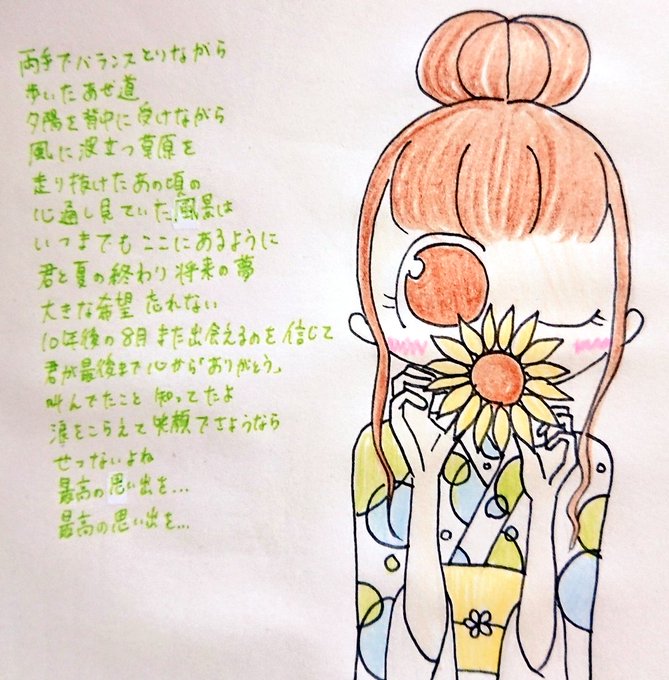 両手でバランスとりながら
歩いたあぜ道
夕陽を背中に受けながら
風に波立つ草原を
走り抜けたあの頃の
心通し見ていた風景は
いつまでもここにあるように
君と夏の終わり 将来の夢
大きな希望 忘れない
10年後の8月 また出会えるのを 信じて
君が最後まで心から「ありがとう」
叫んでたこと 知ってたよ
涙をこらえて 笑顔でさようなら
せつないよね
最高の思い出を...
最高の思い出を...